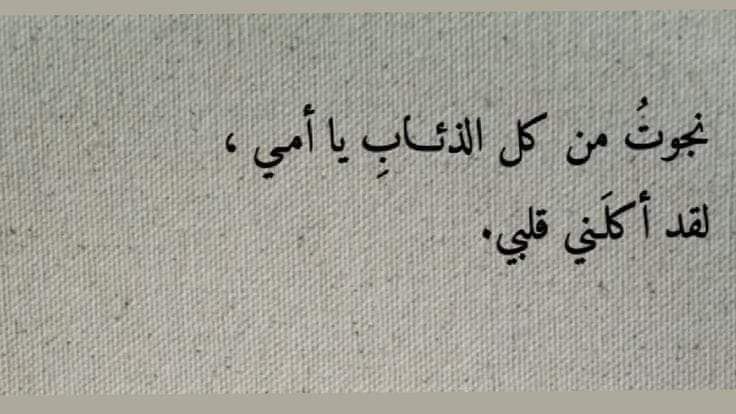 نجوتُ من كل الذئـــابِ يا أمي ،
لقد أكلَني قلبي.